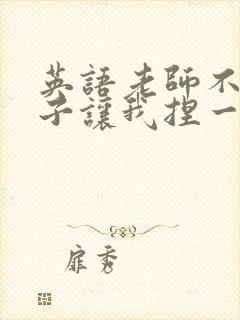 英語老師不
子讓我捏一
扉秀